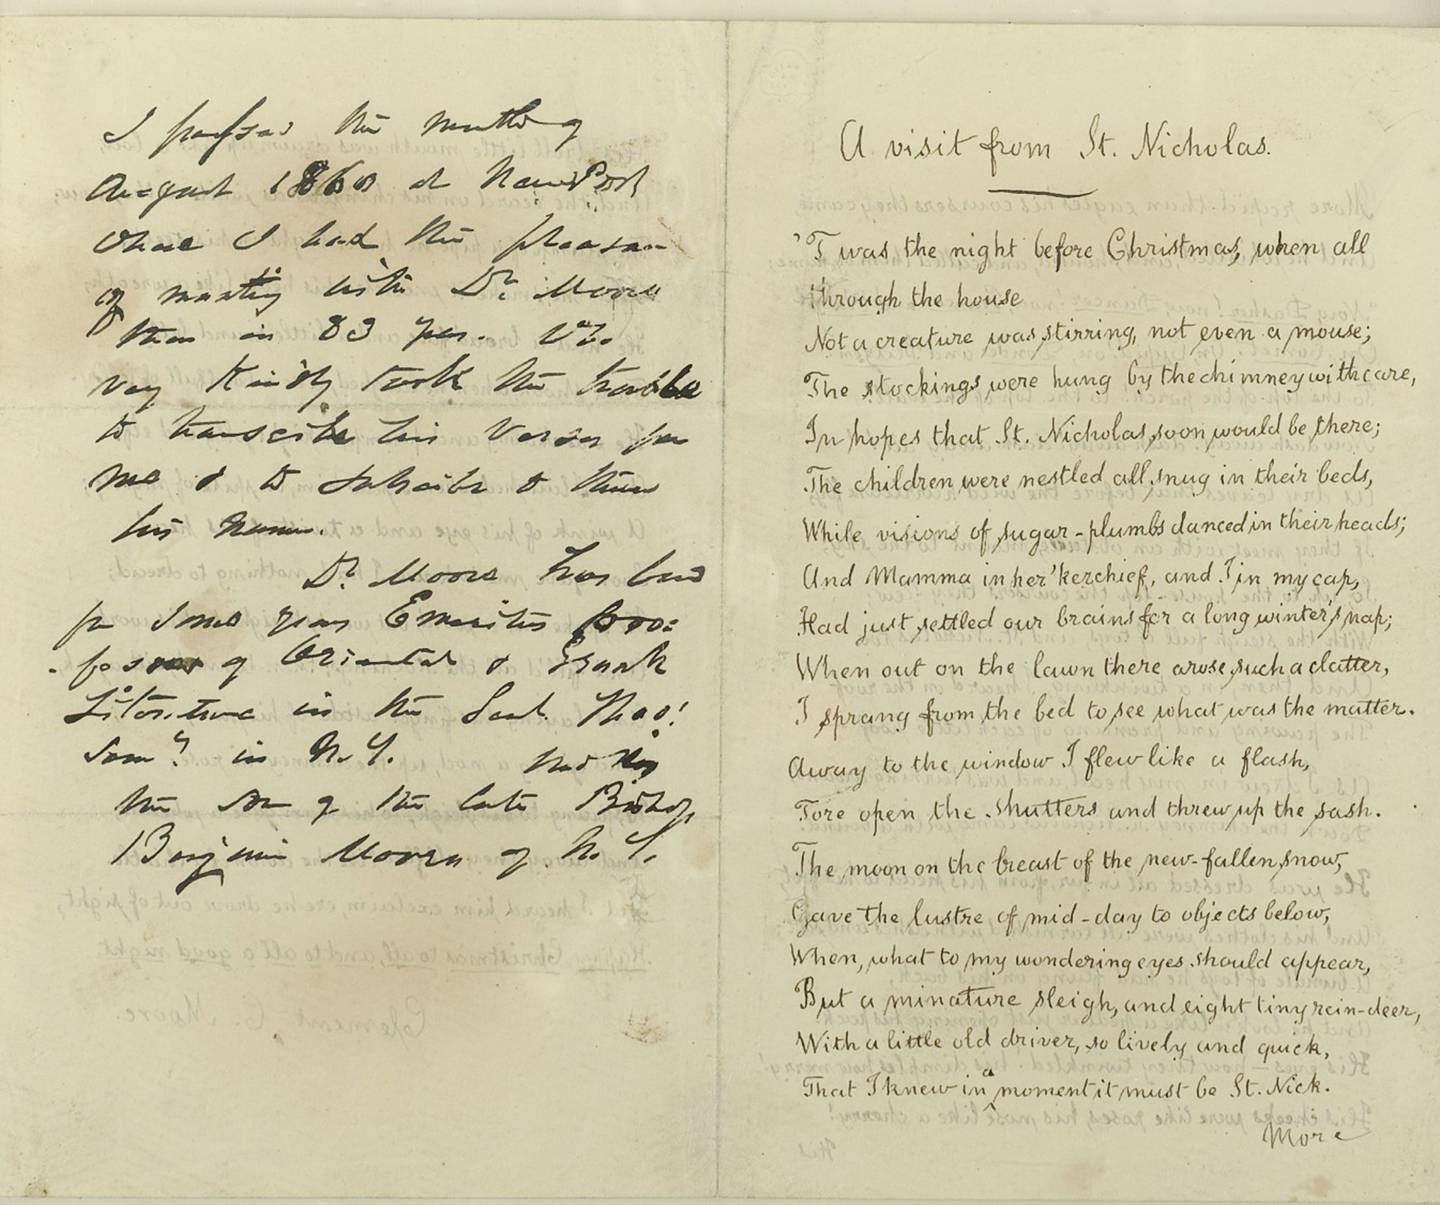 I passed the month of
August 1860 at NewPort
where I had the pleasure
of meeting with Dr. Moore
then in 83 year.
very kindly took the trouble
to transcribe his Verses for
me & to subscribe to them
his name.
Dr. Moore has been
for some years Emeritus Pro=
-fessor of Oriental & Greek
Literature in the Theol
Semy in N.Y. and
the son of the late Bishop
Benjamin Moore of N.Y.
A visit from St. Nicholas.
'T was the night before Christmas, when all
through the house
Not a creature was stirring, not even a mouse;
The stockings were hung by the chimney with care,
In hopes that St. Nicholas soon would be there;
The children were nestled all snug in their beds,
While visions of sugar-plumbs danced in their heads;
And Mamma in her 'kerchief, and I in my cap,
Had just settled our brains for a long winter's nap;
When out on the lawn there arose such a clatter,
I sprang from the bed to see what was the matter.
Away to the window I flew like a flash,
Tore open the shutters and threw up the sash.
The moon on the breast of the new-fallen snow,
Gave the lustre of mid-day to objects below,
When, what to my wondering eyes should appear,
But a minature sleigh, and eight tiny rein-deer,
With a little old driver, so lively and quick,
That I knew in a moment it must be St. Nick.
More